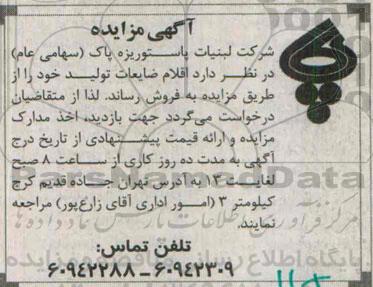 آگهی مزایده
شرکت لبنیات پاستوریزه پاک (سهامی عام)
در نظر دارد اقلام ضایعات تولید خود را از
طریق مزایده به فروش رساند. لذا از متقاضیان
درخواست می‌گردد جهت بازدید، اخذ مدارک
مزایده و ارائه قیمت پیشنهادی از تاریخ درج
آگهی به مدت ده روز کاری از ساعت ۸ صبح
لغایت ۱۳ به آدرس تهران جاده قدیم کرج
کیلومتر ۳ (امور اداری آقای زارع‌پور) مراجعه
نمایند.
ParsNamadData
تلفن تماس:
۶۰۹۴۲۲۸۸ – ۶۰۹۴۲۳۰۹